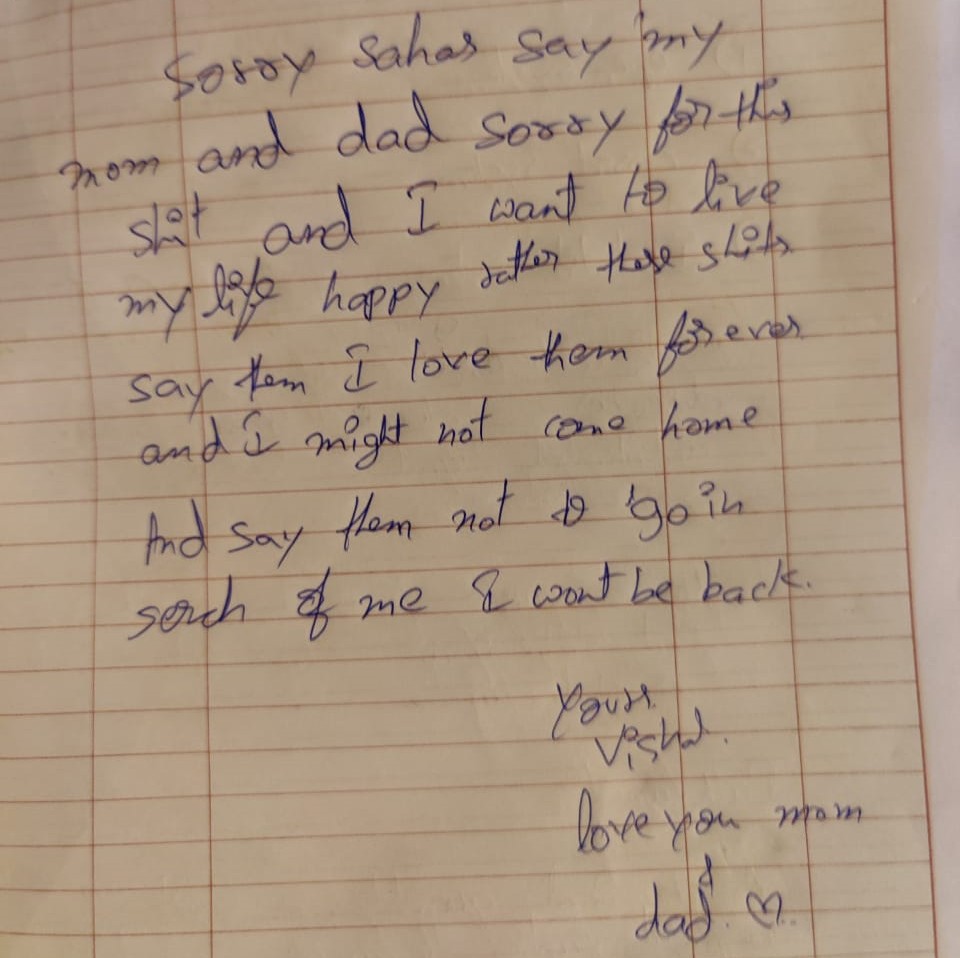 Sorry Sahas say my
mom and dad sorry for this
shit and I want to live
my life happy rather these shits
say tem I love them forever
and I might not come home
And say them not to go in
serch of me I wont be back.
Yours
Vishal.
love you mom
dad. ♡.